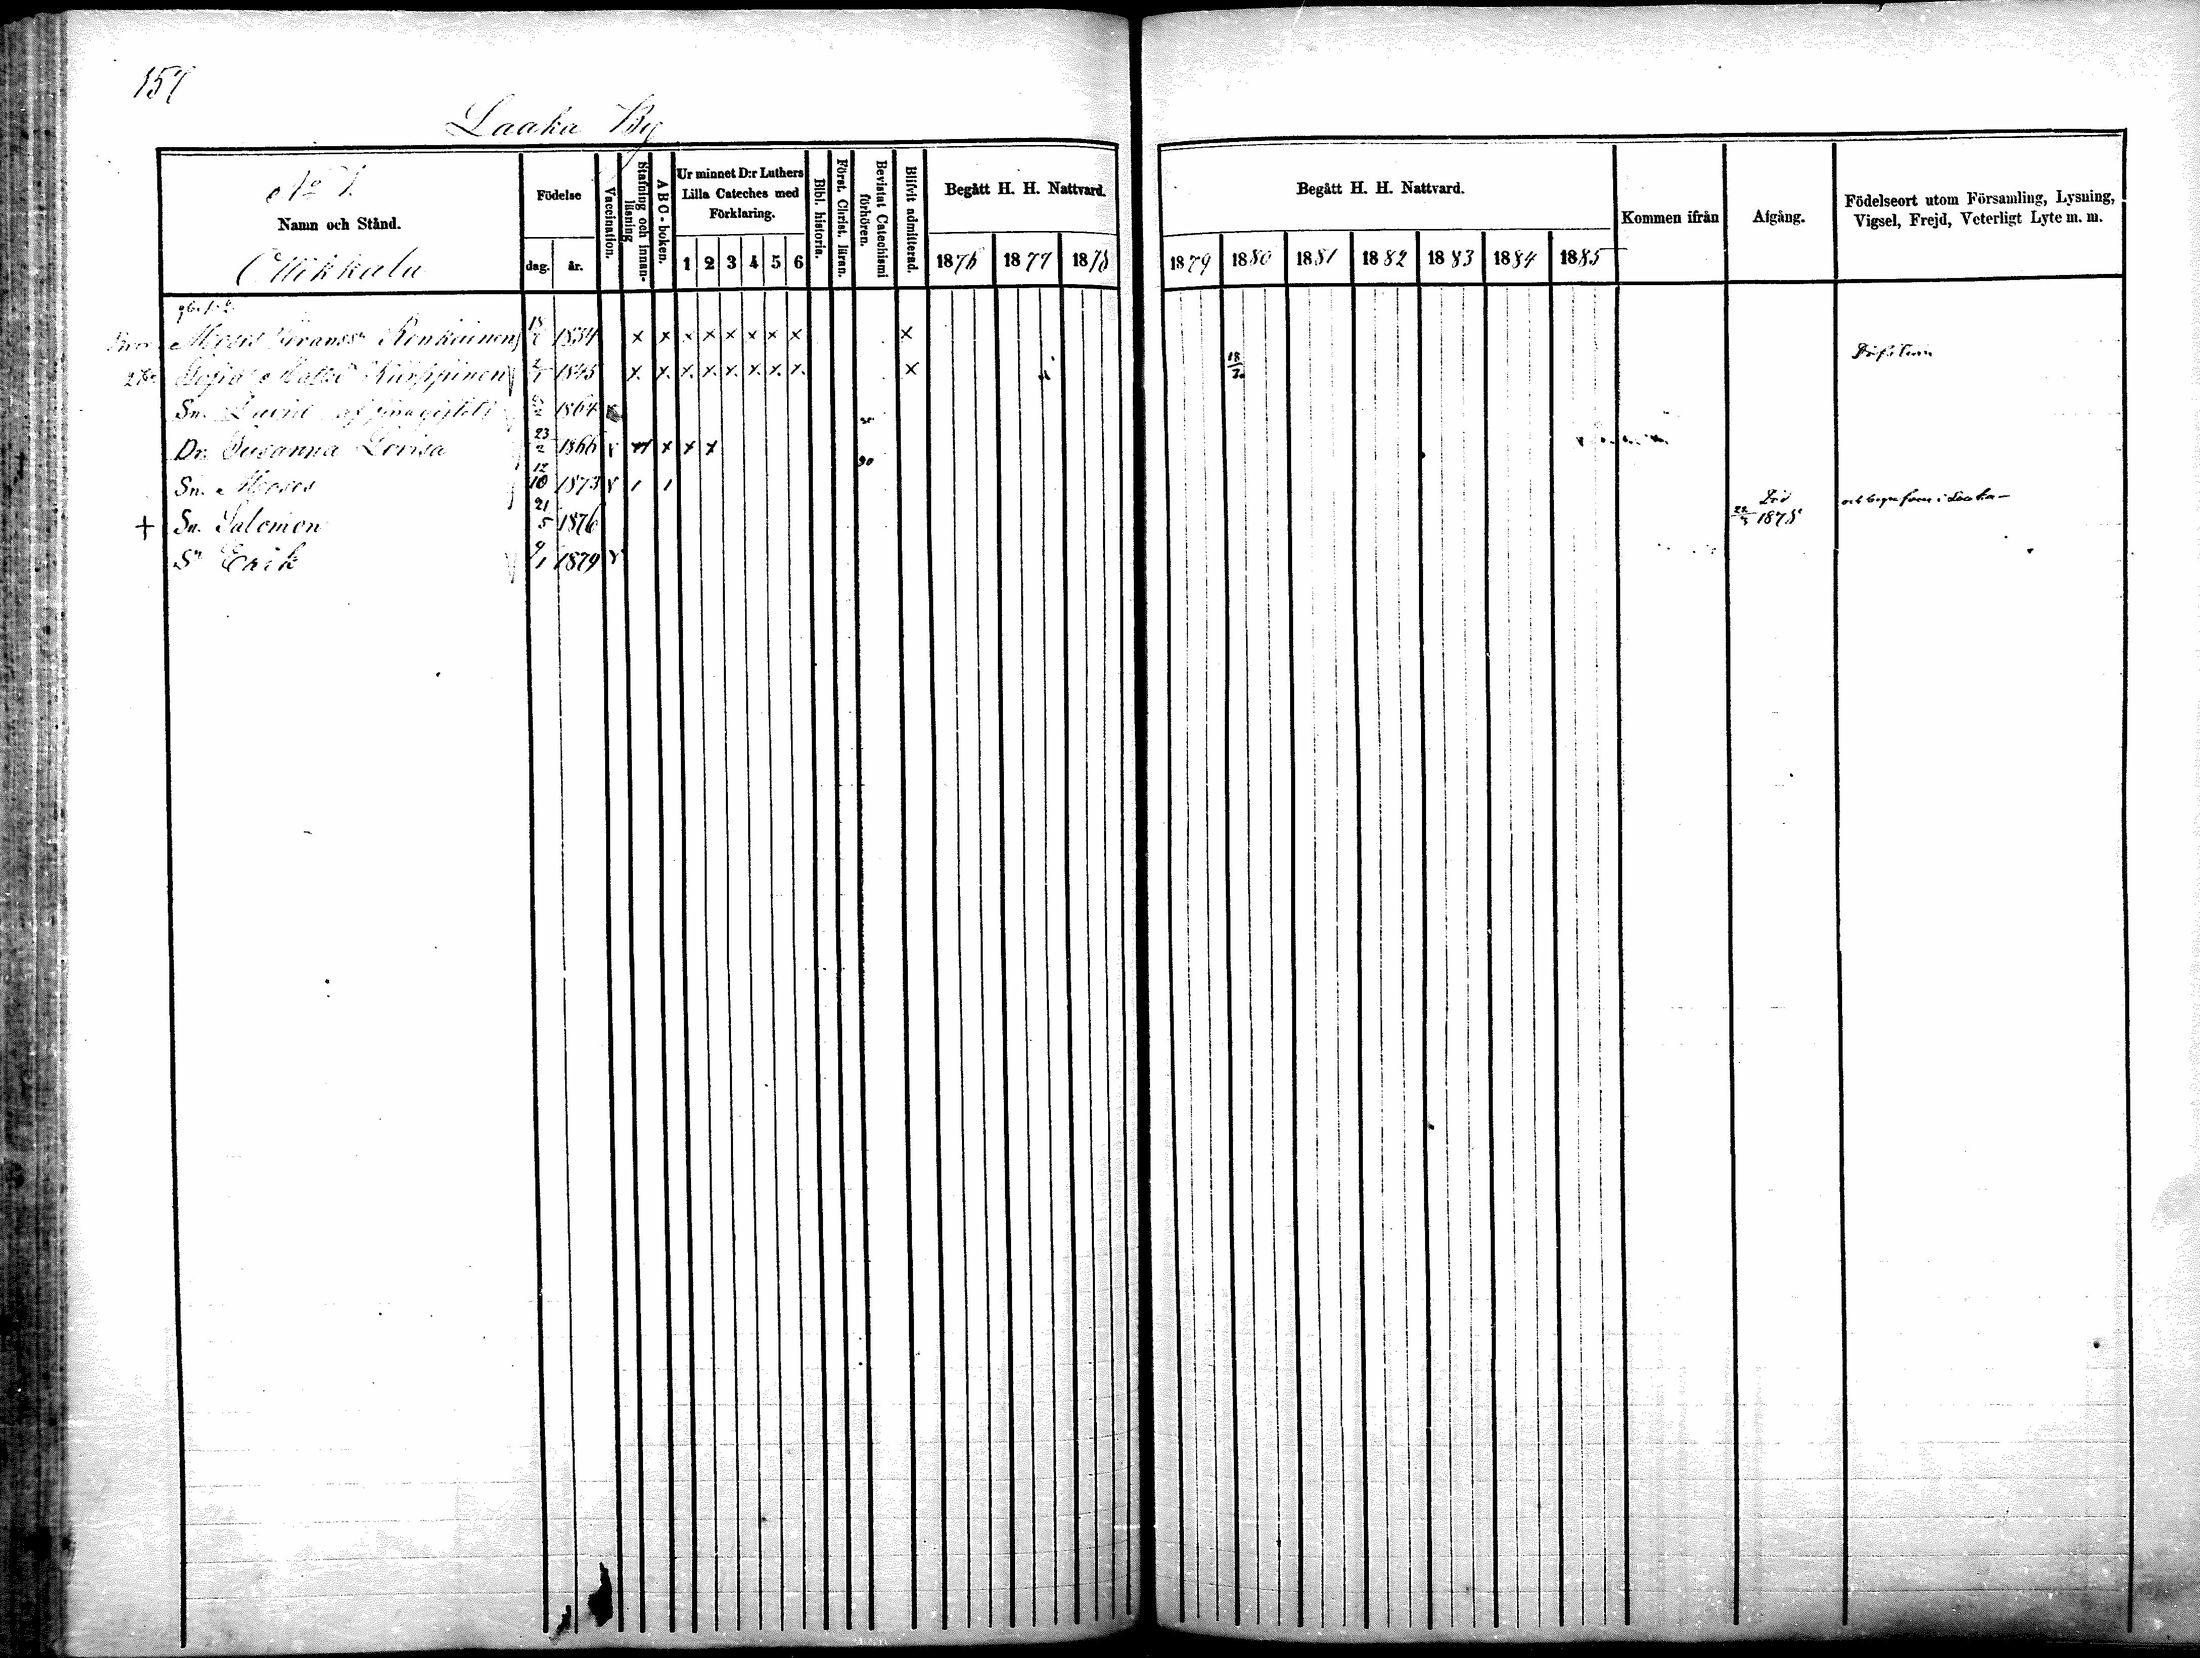 157
Laaka By
No 1.
Namn och Stånd.
Ollikkala
Födelse
dag.
år.
Vaccination.
Stafning och innan-
läsning
ABC-boken.
Ur minnet D:r Luthers
Lilla Cateches med
Förklaring.
1 2 3 4 5 6
Bibl. historia.
Först. Christ. läran.
Bevistat Catechismi
förhören.
Blifvit admitterad.
Begått H. H. Nattvard.
1876 1877 1878
Begått H. H. Nattvard.
1879 1880 1881 1882 1883 1884 1885
Kommen ifrån
Afgång.
Födelseort utom Församling, Lysning,
Vigsel, Frejd, Veterligt Lyte m. m.
Moses 1834 x x x x x x x x x
Sofia 1845 x x x x x x x x x 18
Sn. David 1864
Dr. Susanna Lovisa 23/2 1866 x x x x
90
Sn. Moses 12/10 1873
+ Sn. Salomon 21/5 1876 Död 22/3 1878
Sn Erik 9/1 1879